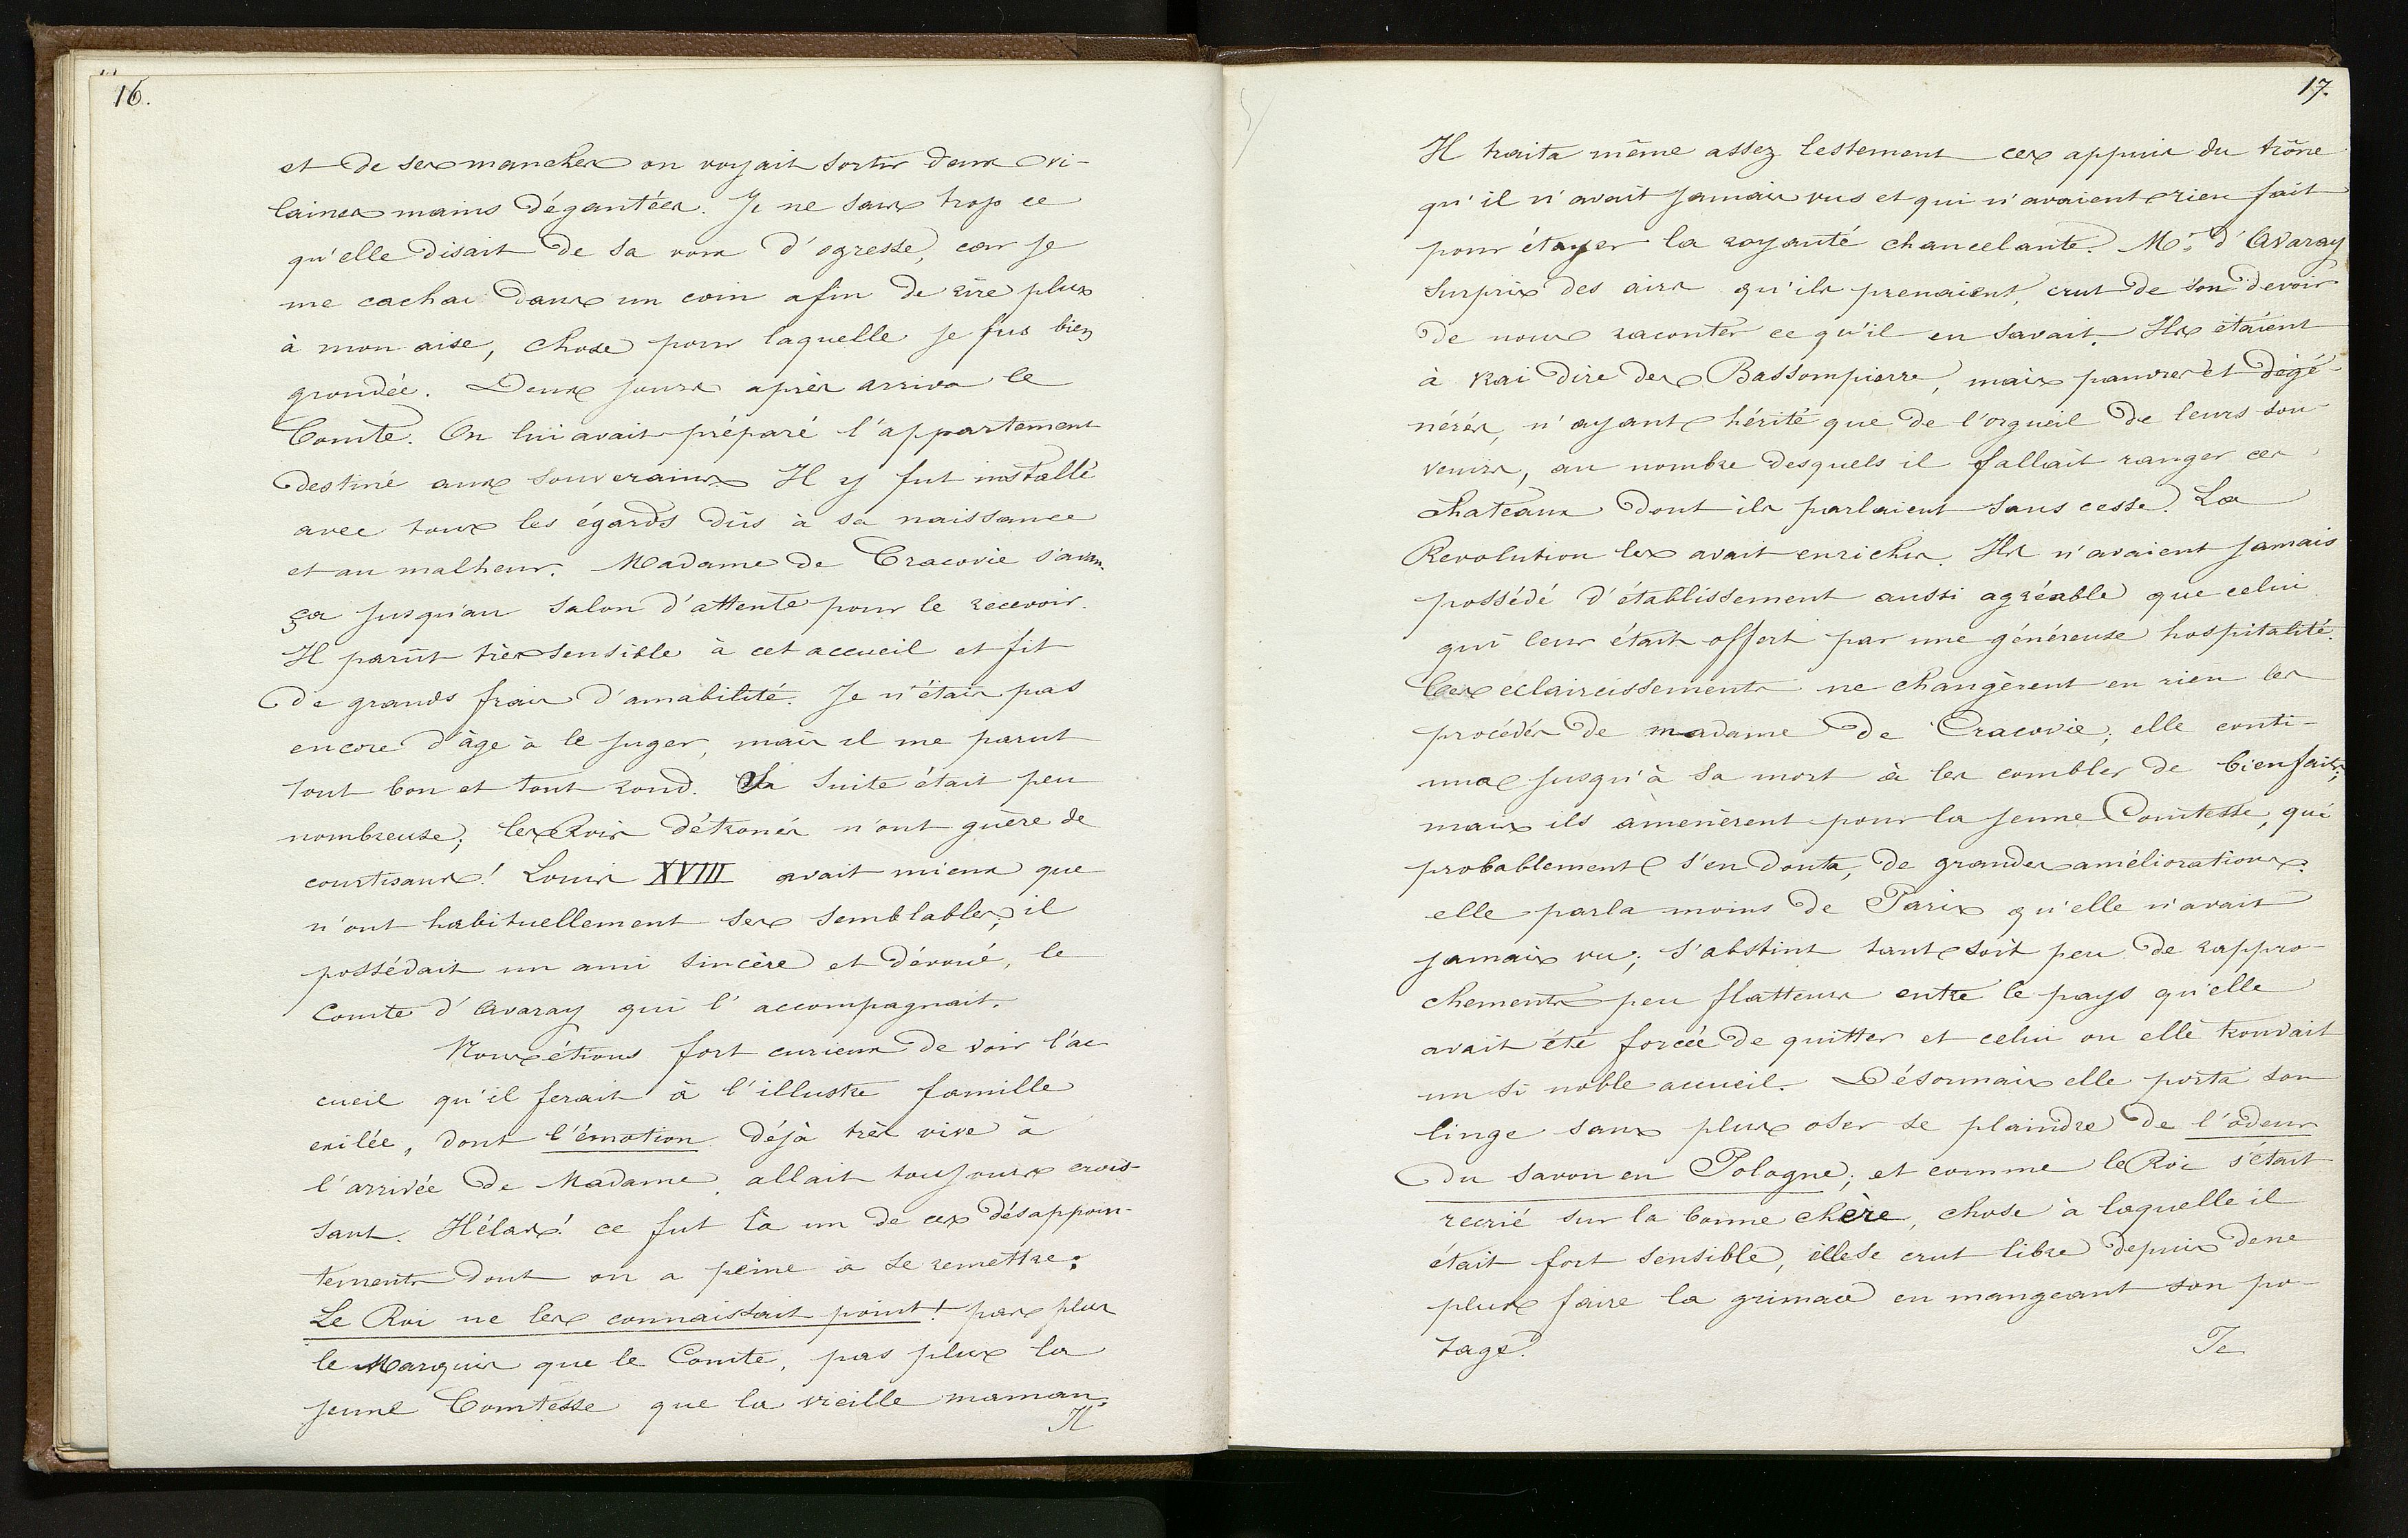 16.
et de ses manches on voyait sortir deux vi-
laines mains dégantées. Je ne sais trop ce
qu'elle disait de sa voix d'ogresse, car je
me cachai dans un coin afin de rire plus
à mon aise, chose pour laquelle je fus bien
grondée. Deux jours après arriva le
Comte. On lui avait préparé l'appartement
destiné aux souverains. Il y fut installé
avec tous les égards dûs à sa naissance
et au malheur. Madame de Cracovie s'avan-
ça jusqu'au salon d'attente pour le recevoir.
Il parût très sensible à cet accueil et fit
de grands frais d'amabilité. Je n'étais pas
encore d'âge à le juger, mais il me parut
tout bon et tout rond. Sa suite était peu
nombreuse; les Rois détronés n'ont guère de
courtisans! Louis XVIII avait mieux que
n'ont habituellement ses semblables; il
possédait un ami sincère et dévoué, le
Comte d'Avaray qui l'accompagnait.
Nous étions fort curieux de voir l'ac
cueil qu'il ferait à l'illustre famille
exilée, dont l'émotion déjà très vive à
l'arrivée de Madame, allait toujours crois-
sant. Hélas! ce fut là un de ces désappoin-
tements dont on a peine à se remettre:
Le Roi ne les connaissait point! pas plus
le Marquis que le Comte, pas plus la
jeune Comtesse que la vieille maman.
Il
17.
Il traita même assez lestement ces appuis du trône
qu'il n'avait jamais vus et qui n'avaient rien fait
pour étayer la royauté chancelante. Mr. d'Avaray
surpris des airs qu'ils prenaient, crut de son devoir
de nous raconter ce qu'il en savait. Ils étaient
à vrai dire des Bassompierre, mais pauvres et dégé-
nérés, n'ayant hérité que de l'orgueil de leurs sou-
venirs, au nombre desquels il fallait ranger ces
chateaux dont ils parlaient sans cesse. La
Revolution les avait enrichis. Ils n'avaient jamais
possédé d'établissement aussi agréable que celui
qui leur était offert par une généreuse hospitalité.
Ces éclaircissements ne changèrent en rien les
procédés de madame de Cracovie; elle conti-
nua jusqu'à sa mort à les combler de bienfaits;
mais ils amenèrent pour la jeune Comtesse, qui
probablement s'en douta, de grandes améliorations:
elle parla moins de Paris qu'elle n'avait
jamais vu; s'abstint tant soit peu de rappro-
chements peu flatteurs entre le pays qu'elle
avait été forcée de quitter et celui ou elle trouvait
un si noble accueil. Désormais elle porta son
linge sans plus oser se plaindre de l'odeur
du savon en Pologne; et comme le Roi s'était
recrié sur la bonne chère, chose à laquelle il
était fort sensible, elle se crut libre depuis de ne
plus faire la grimace en mangeant son po-
tage.
Je